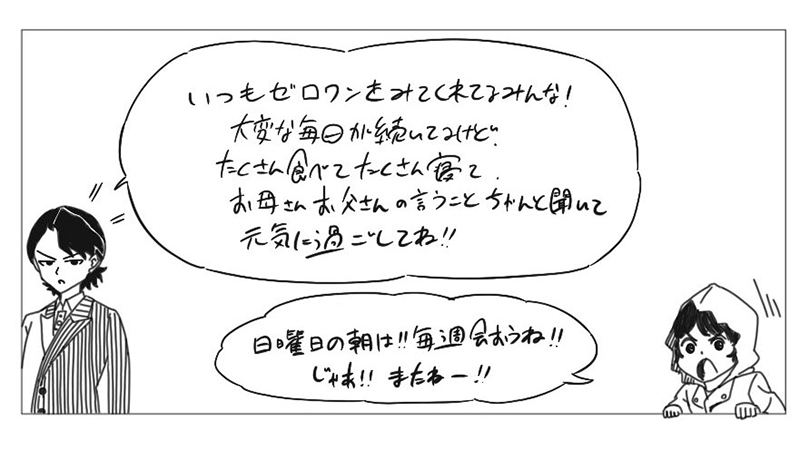 いつもゼロワンをみてくれてるみんな!
大変な毎日が続いてるけど、
たくさん食べてたくさん寝て、
お母さんお父さんの言うことちゃんと聞いて
元気に過ごしてね!!
日曜日の朝は!!毎週会おうね!!
じゃあ!!またねー!!